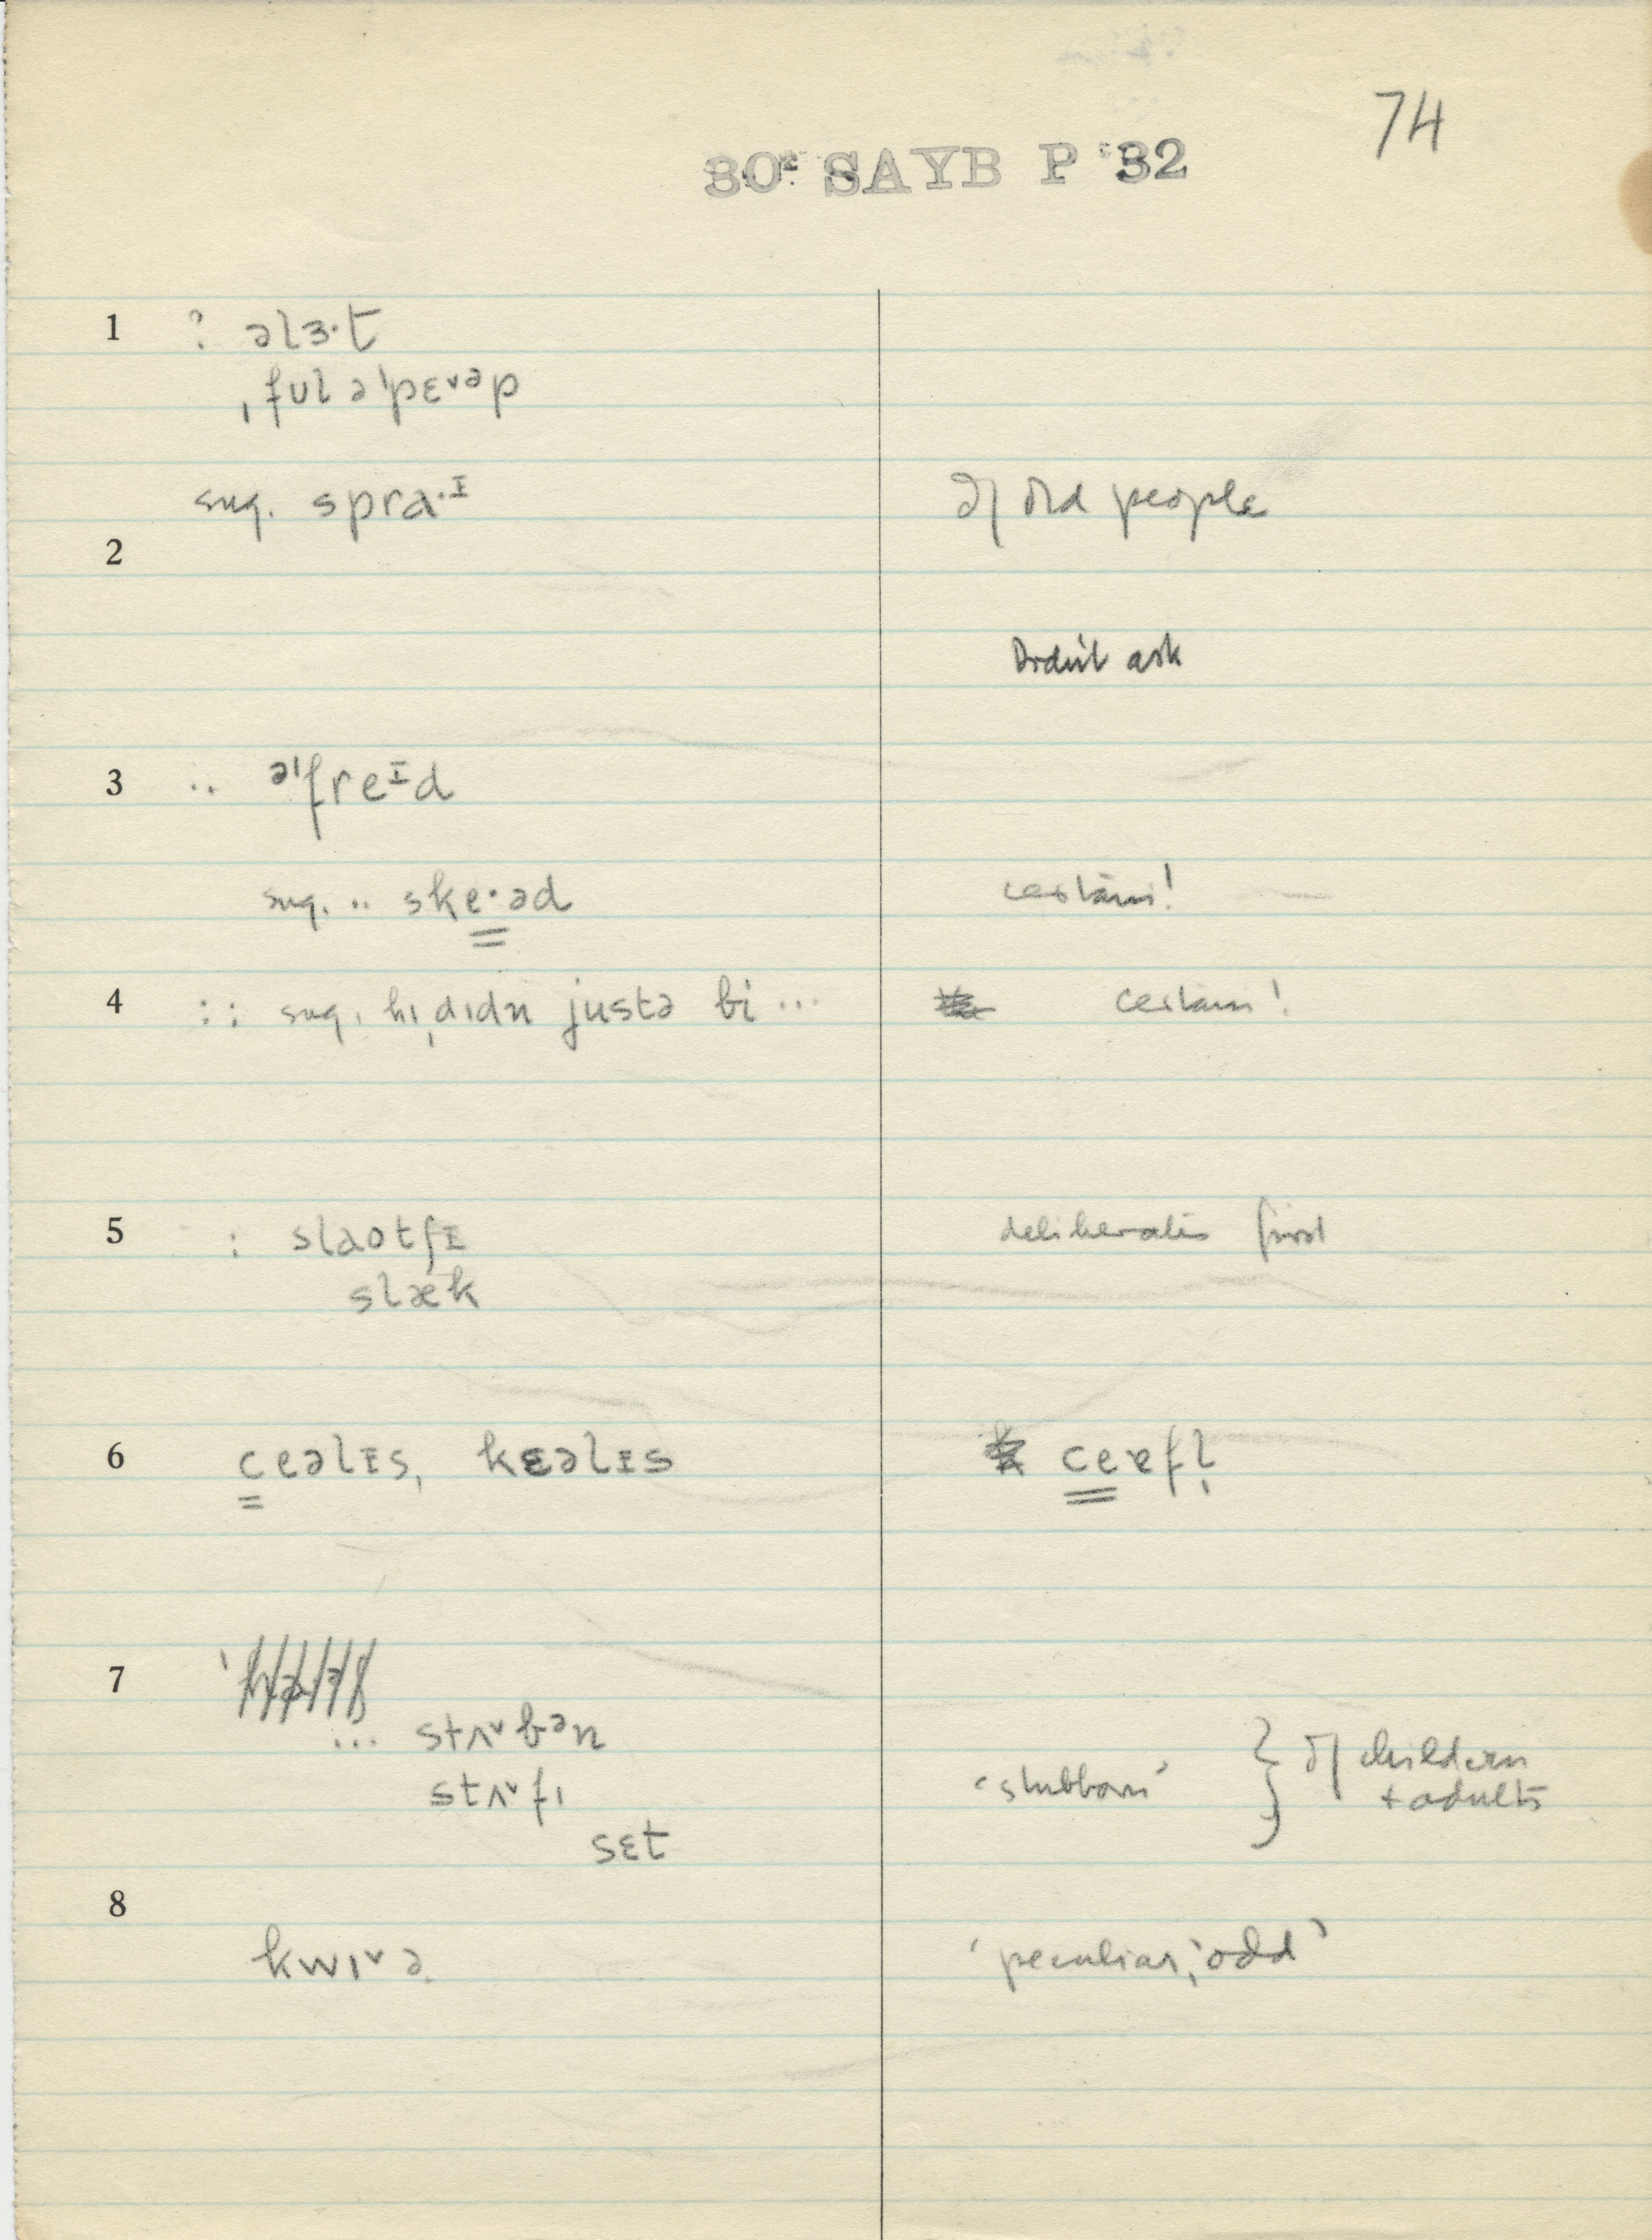 74
30ᴱ SAYB P 32
1 ? əlɜ·t
ˌfʊl ə'pɛˇᵊp
sug. sprɑ·ᶦ of old people
2
Didn't ask
3 .. ə'freᶦd
sug. .. ske·əd certain!
4 : : sug. hɪˌdɪdn justə bi ... certain!
5 : slaotʃɪ deliberates first
slæk
6 ceəlɪs, kɛəlɪs ceɐfl̩
7
... stʌˇbᵊn
stʌˇfɪ 'stubborn' } of children
+ adults
sɛt
8
kwɪˇə 'peculiar,' 'odd'